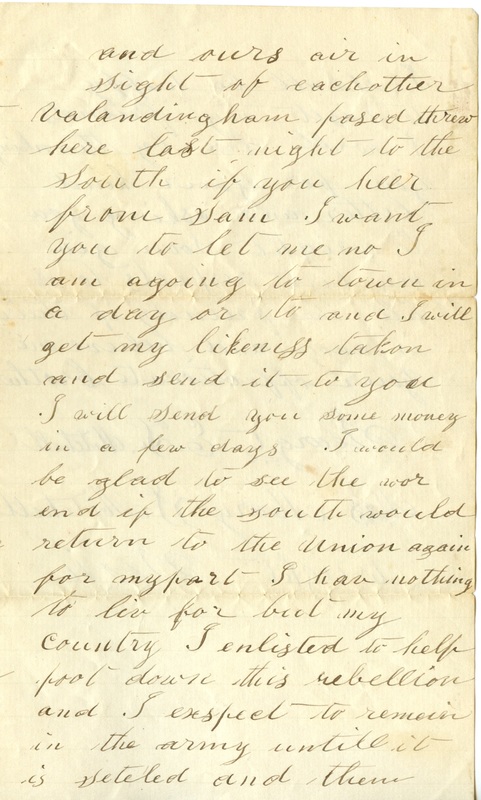 and ours air in
sight of eachother
Valandingham pased threw
here last night to the
South if you heer
from Sam I want
you to let me no I
am agoing to town in
a day or to and I will
get my likeness takon
and send it to you
I will send you some money
in a few days I would
be glad to see the wor
end if the south would
return to the Union again
for mypart I hav nothing
to liv for but my
country I enlisted to help
poot down this rebellion
and I exspect to remain
in the army untill it
is seteled and then